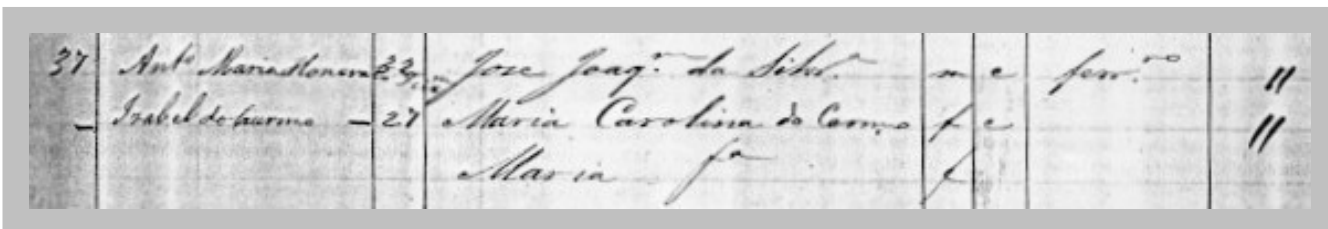 37 Ant.º Maria 23 Jose Joaq.m da Silv.ª m c ferr.ro "
- Isabel do Carmo - 27 Maria Carolina do Carmo f c "
Maria f.ª f